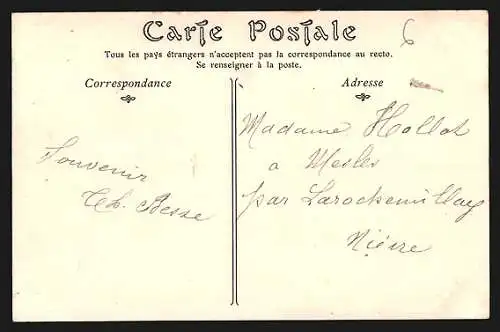 Carte Postale
6
Tous les pays étrangers n'acceptent pas la correspondance au recto.
Se renseigner à la poste.
Correspondance
Adresse
Souvenir
Th. Besse
Madame Hollot
a Mesles
par Larochemillay
Nièvre